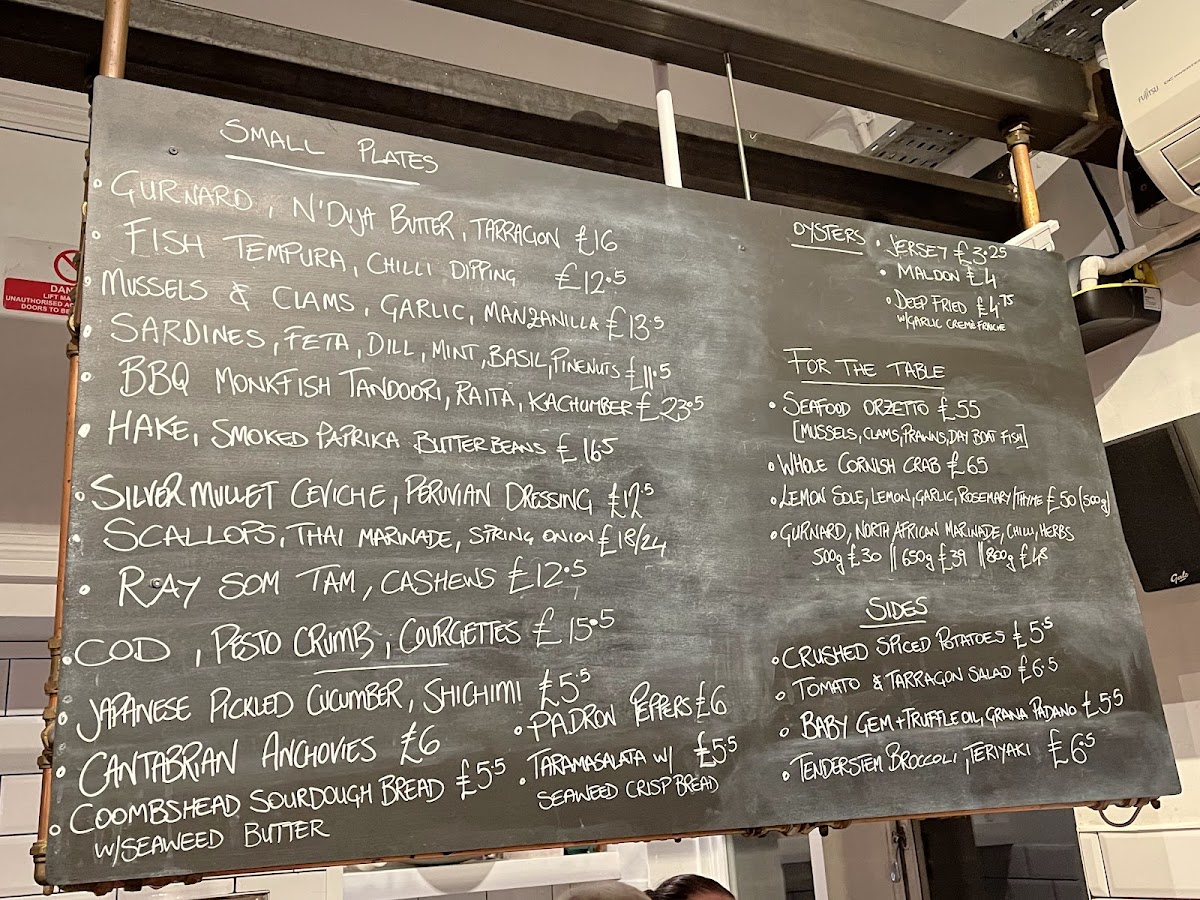 SMALL PLATES
GURNARD, N'DUJA BUTTER, TARRAGON £16
FISH TEMPURA, CHILLI DIPPING £12.5
MUSSELS & CLAMS, GARLIC, MANZANILLA £13.5
SARDINES, FETA, DILL, MINT, BASIL, PINENUTS £11.5
BBQ MONKFISH TANDOORI, RAITA, KACHUMBER £23.5
HAKE, SMOKED PAPRIKA BUTTERBEANS £16.5
SILVER MULLET CEVICHE, PERUVIAN DRESSING £12.5
SCALLOPS, THAI MARINADE, STRING ONION £18/24
RAY SOM TAM, CASHEWS £12.5
COD, PESTO CRUMB, COURGETTES £15.5
JAPANESE PICKLED CUCUMBER, SHICHIMI £5.5
CANTABRIAN ANCHOVIES £6
COOMBSHEAD SOURDOUGH BREAD £5.5
W/SEAWEED BUTTER
PADRON PEPPERS £6
TARAMASALATA W/ £5.5
SEAWEED CRISP BREAD
OYSTERS • JERSEY £3.25
• MALDON £4
• DEEP FRIED £4.75
W/GARLIC CREMÉ FRAICHE
FOR THE TABLE
• SEAFOOD ORZETTO £55
[MUSSELS, CLAMS, PRAWNS, DAY BOAT FISH]
• WHOLE CORNISH CRAB £65
• LEMON SOLE, LEMON, GARLIC, ROSEMARY/THYME £50 (500g)
• GURNARD, NORTH AFRICAN MARINADE, CHILLI, HERBS
500g £30 || 650g £39 || 800g £48
SIDES
• CRUSHED SPICED POTATOES £5.5
• TOMATO & TARRAGON SALAD £6.5
• BABY GEM + TRUFFLE OIL, GRANA PADANO £5.5
• TENDERSTEM BROCCOLI, TERIYAKI £6.5
FUJITSU